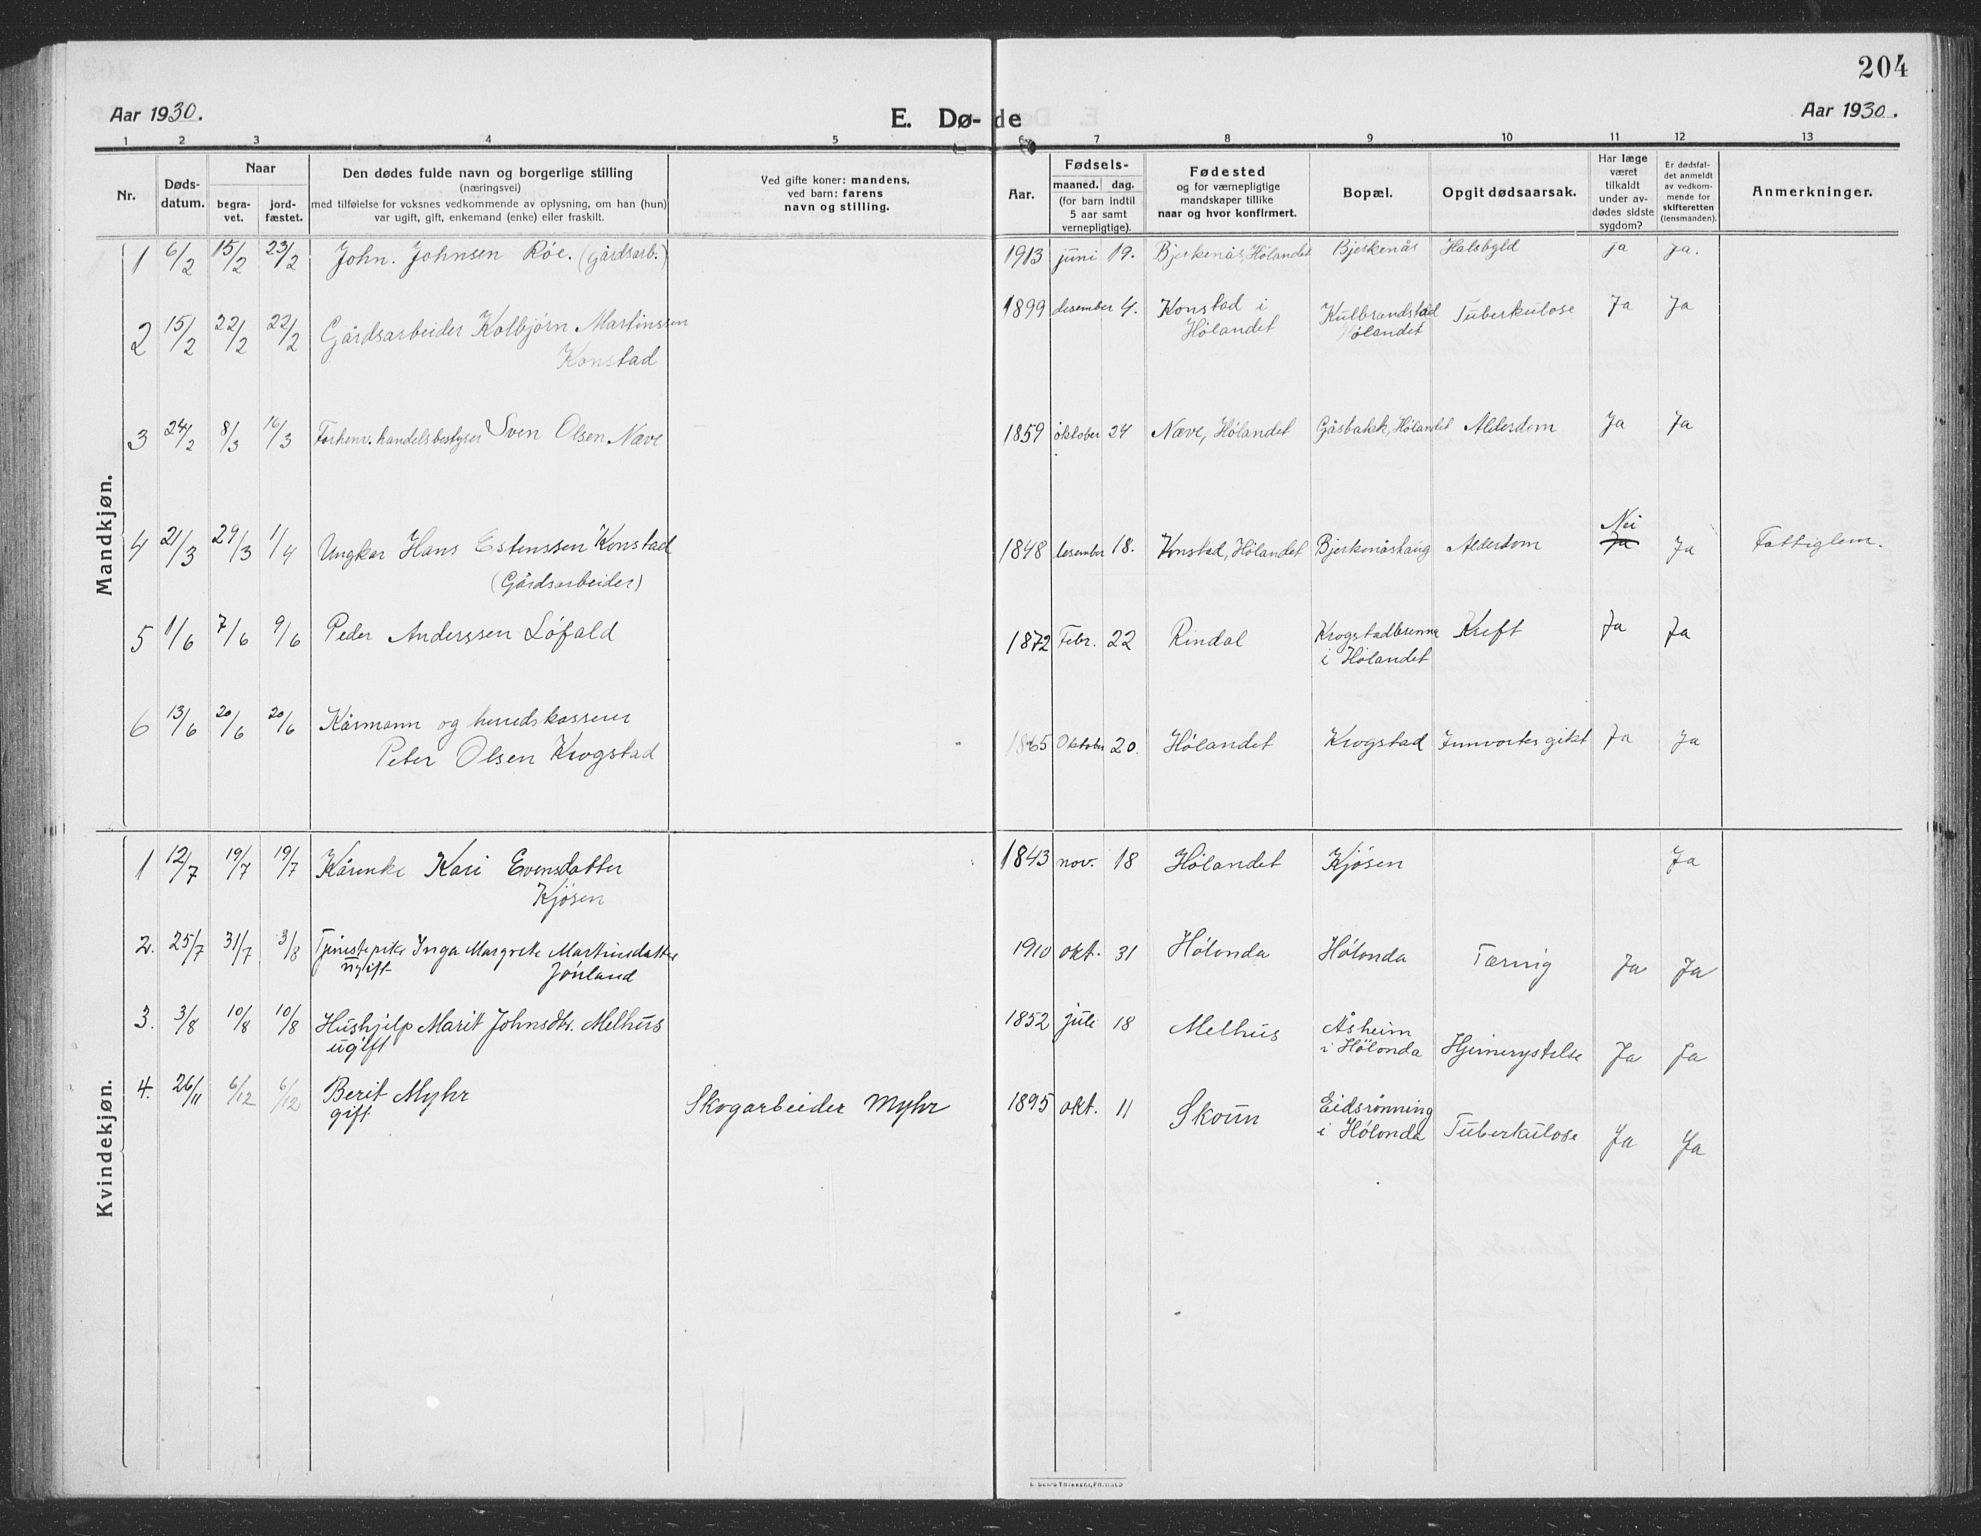 204
Aar 1930.
E. Dø- de
Aar 1930.
1 2 3 4 5 6 7 8 9 10 11 12 13
Nr.
Døds-
datum.
Naar
begra-
vet.
jord-
fæstet.
Den dødes fulde navn og borgerlige stilling
(næringsvei)
med tilføielse for voksnes vedkommende av oplysning, om han (hun)
var ugift, gift, enkemand (enke) eller fraskilt.
Ved gifte koner: mandens,
ved barn: farens
navn og stilling.
Aar.
Fødsels-
maaned. dag.
(for barn indtil
5 aar samt
vernepligtige).
Fødested
og for værnepligtige
mandskaper tillike
naar og hvor konfirmert.
Bopæl.
Opgit dødsaarsak.
Har læge
været
tilkaldt
under av-
dødes sidste
sygdom?
Er dødsfal-
det anmeldt
av vedkom-
mende for
skifteretten
(lensmanden).
Anmerkninger.
Mandkjøn.
1 6/2 15/2 23/2 John. Johnsen Röe. (gårdsarb.) 1913 juni 19. Bjerkenås, Hölandet Bjerkenås Halsbyld ja ja.
2 15/2 22/2 22/2 Gårdsarbeider Kolbjörn Martinssen 1899 desember 4. Konstad i Kulbrandstad Tuberkulose Ja Ja
Konstad Hölandet Hölandet
3 24/2 8/3 16/3 Forhenv. handelsbestyrer Sven Olsen Næve 1859 oktober 24 Næve, Hölandet Gåsbakk, Hölandet Alderdom Ja Ja
Nei
4 21/3 29/3 1/4 Ungkar Hans Estenssen Konstad 1848 desember 18. Konstad, Hölandet Bjerkenåshaug Alderdom Ja Ja Fattiglem.
(Gårdsarbeider)
5 1/6 7/6 9/6 Peder Anderssen Löfald 1872 Febr. 22 Rindal Krogstadbrenna Kreft Ja Ja
i Hölandet
6 13/6 20/6 20/6 Kårmann og herredskasserer
Peter Olsen Krogstad 1865 Oktober 20. Hölandet Krogstad Innvortes gikt Ja Ja
Kvindekjøn.
1 12/7 19/7 19/7 Kårenke Kari Evensdatter 1843 nov. 18 Hölandet Kjösen Ja
Kjösen
2. 25/7 31/7 3/8 Tjenestepike Inga Margrete Martinsdatter 1910 okt. 31 Hölonda Hölonda Tæring Ja Ja
ugift Jönland
3. 3/8 10/8 10/8 Hushjelp Marit Johnsdtr. Melhus 1852 juli 18 Melhus Åsheim
ugift i Hölonda Hjernerystelse Ja Ja
4. 26/11 6/12 6/12 Berit Myhr Skogarbeider Myhr 1895 okt. 11 Skoun Eidsrönning
gift i Hölonda Tuberkulose Ja Ja